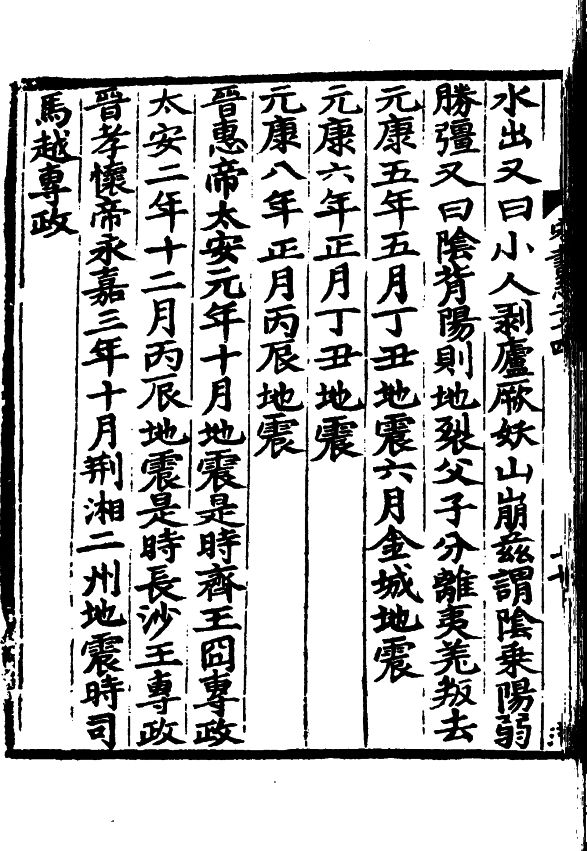 水出又曰小人剥廬厥妖山崩茲謂陰乗陽弱
勝彊又曰陰背陽則地裂父子分離夷羌叛去
元康五年五月丁丑地震六月金城地震
元康六年正月丁丑地震
元康八年正月丙辰地震
晉惠帝太安元年十月地震是時齊王冏專政
太安二年十二月丙辰地震是時長沙王專政
晉孝懷帝永嘉三年十月荆湘二州地震時司
馬越專政